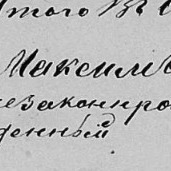 Итого
Максимъ
незаконнро
жденный